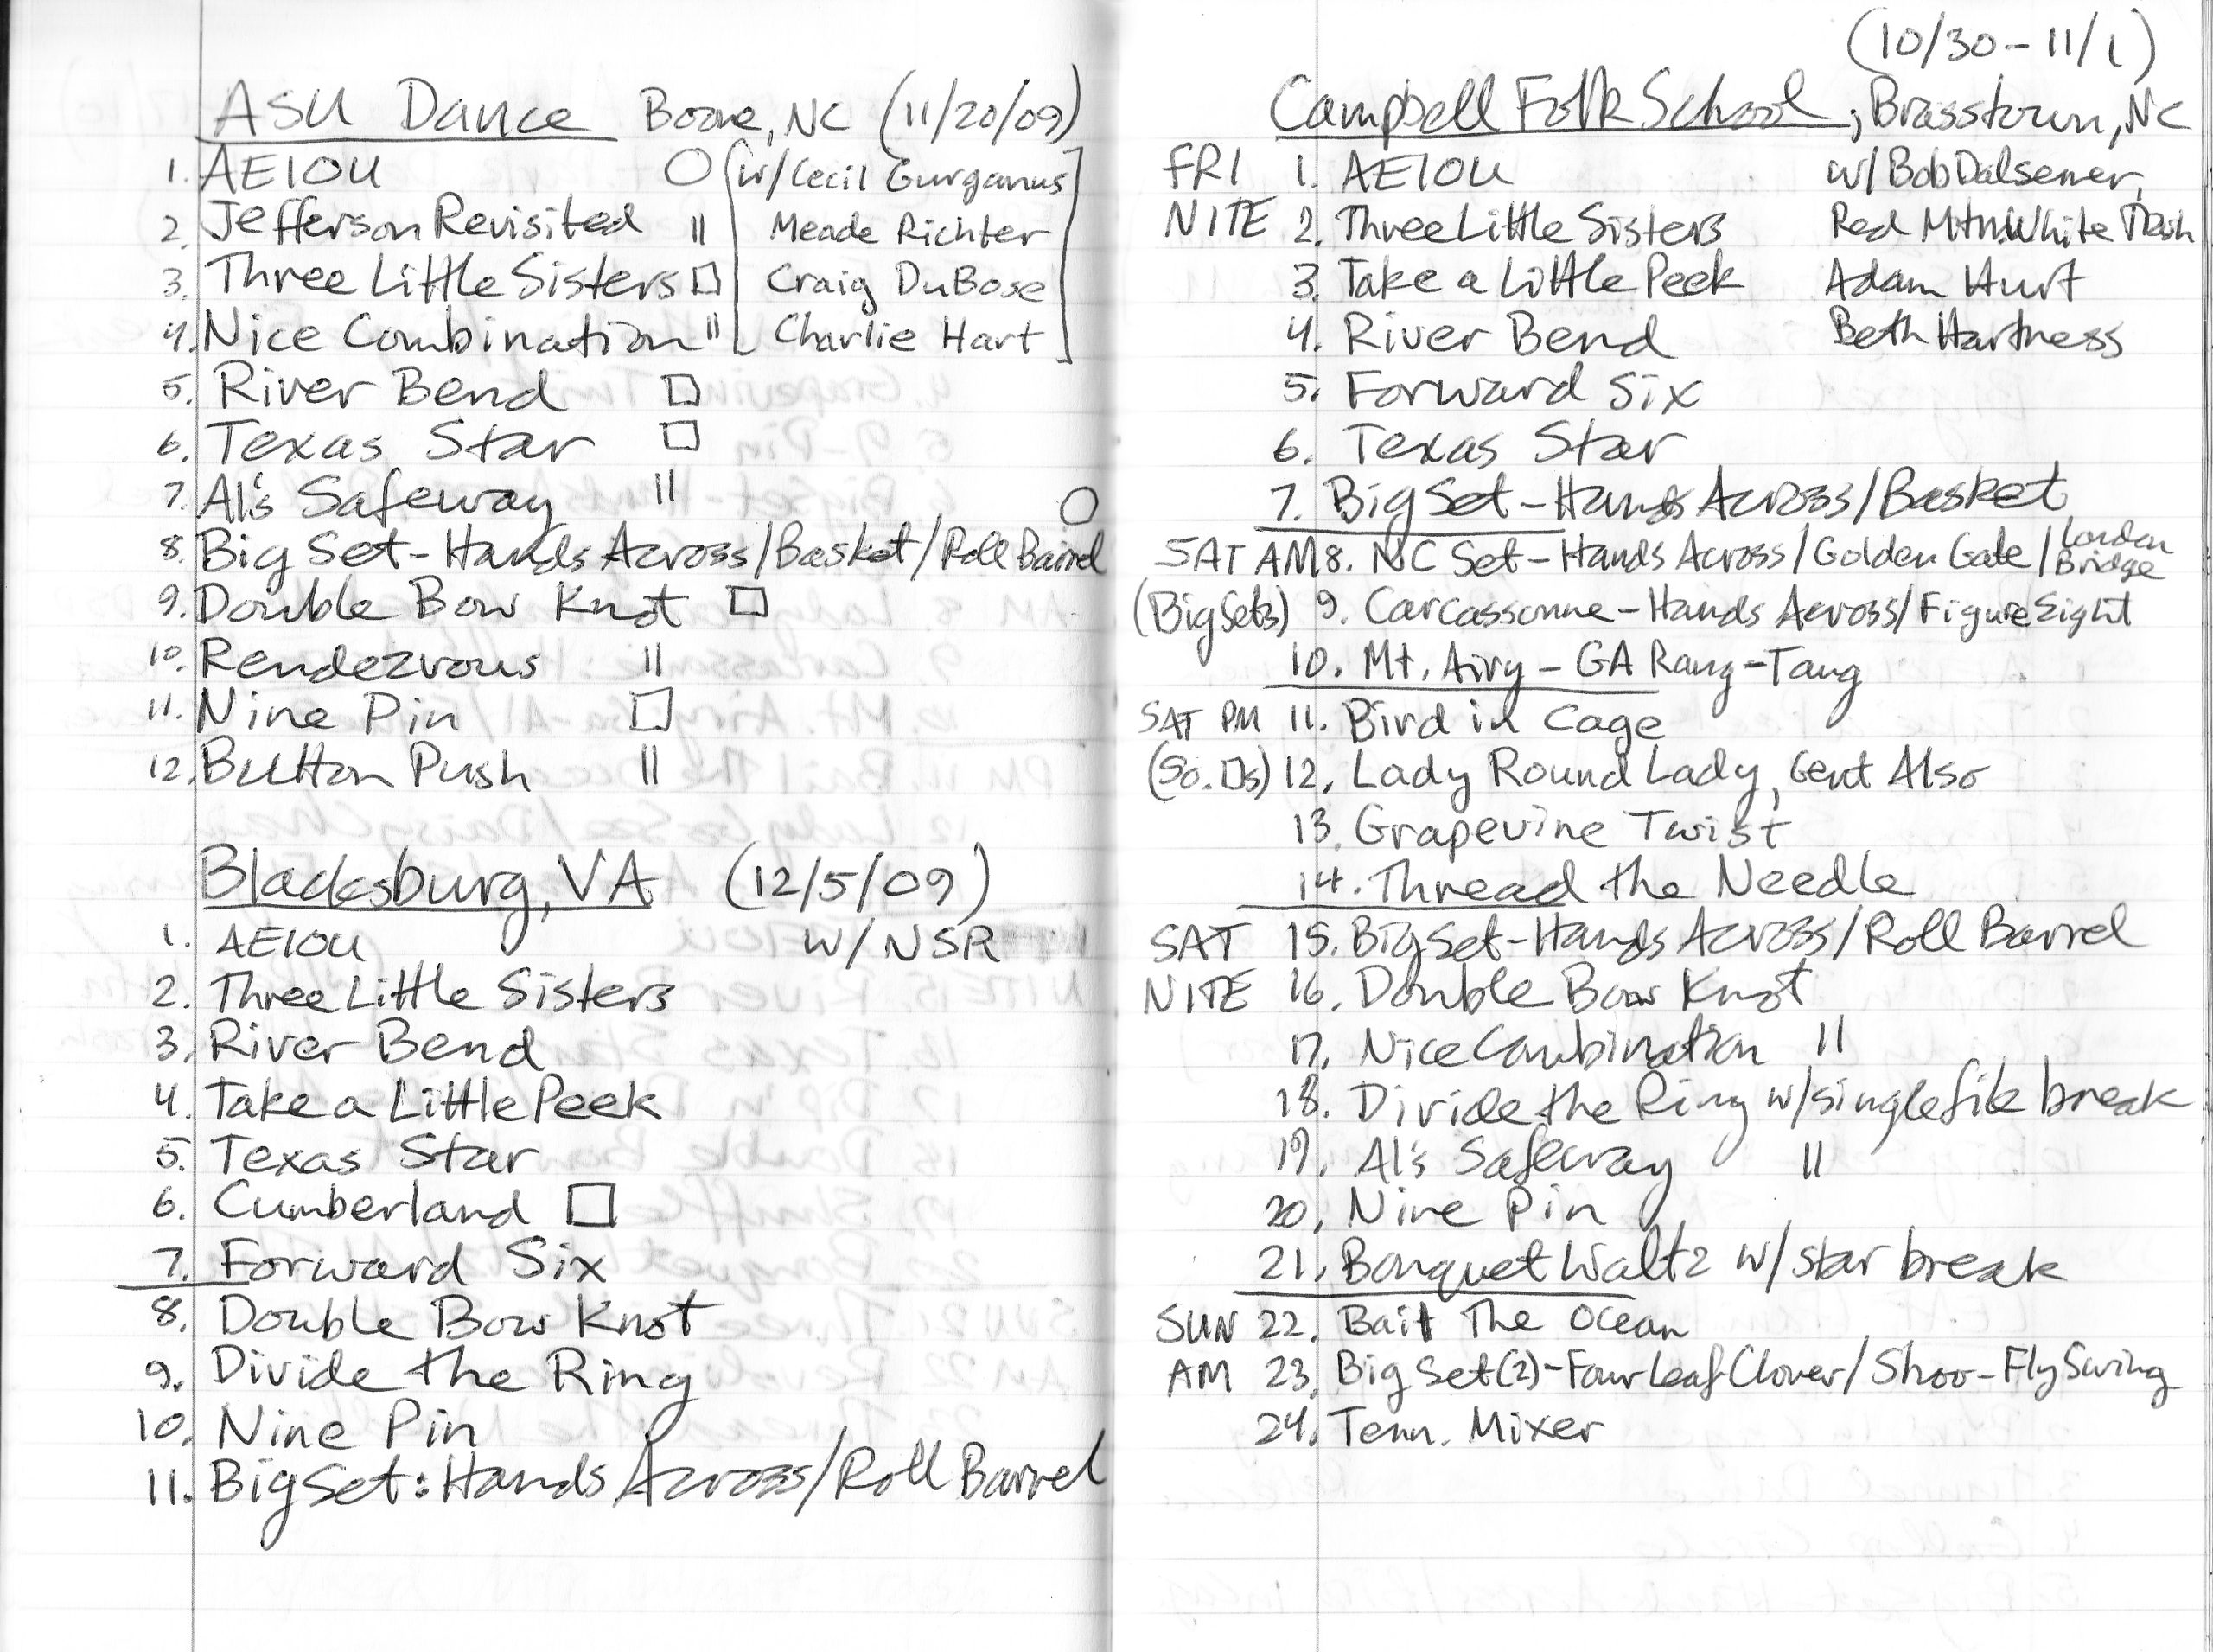 ASU Dance Boone, NC (11/20/09)
1. AEIOU ○ [w/Cecil Gurganus
2. Jefferson Revisited || Meade Richter
3. Three Little Sisters □ Craig DuBose
4. Nice Combination || Charlie Hart]
5. River Bend □
6. Texas Star □
7. Al's Safeway || ○
8. Big Set - Hands Across/Basket/Roll Barrel
9. Double Bow Knot □
10. Rendezvous ||
11. Nine Pin □
12. Button Push ||
Blacksburg, VA (12/5/09)
1. AEIOU w/NSR
2. Three Little Sisters
3. River Bend
4. Take a Little Peek
5. Texas Star
6. Cumberland □
7. Forward Six
8. Double Bow Knot
9. Divide the Ring
10. Nine Pin
11. Big Set: Hands Across/Roll Barrel
(10/30 - 11/1)
Campbell Folk School; Brasstown, NC
FRI 1. AEIOU w/ Bob Dalsemer,
NITE 2. Three Little Sisters Red Mtn. White Trash
3. Take a Little Peek Adam Hurt
4. River Bend Beth Hartness
5. Forward Six
6. Texas Star
7. Big Set - Hands Across/Basket
SAT AM 8. NC Set - Hands Across/Golden Gate/London Bridge
(Big Sets) 9. Carcassonne - Hands Across/Figure Eight
10. Mt. Airy - GA Rang-Tang
SAT PM 11. Bird in Cage
(So. □s) 12. Lady Round Lady, Gent Also
13. Grapevine Twist
14. Thread the Needle
SAT 15. Big Set - Hands Across/Roll Barrel
NITE 16. Double Bow Knot
17. Nice Combination ||
18. Divide the Ring w/single file break
19. Al's Safeway ||
20. Nine Pin
21. Bouquet Waltz w/star break
SUN 22. Bait The Ocean
AM 23. Big Set (2) - Four Leaf Clover/Shoo-Fly Swing
24. Tenn. Mixer